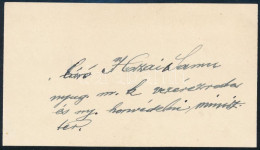 báró Hazai Samu
nyug m. k vezérezredes
és ny. honvédelmi minisz-
ter.